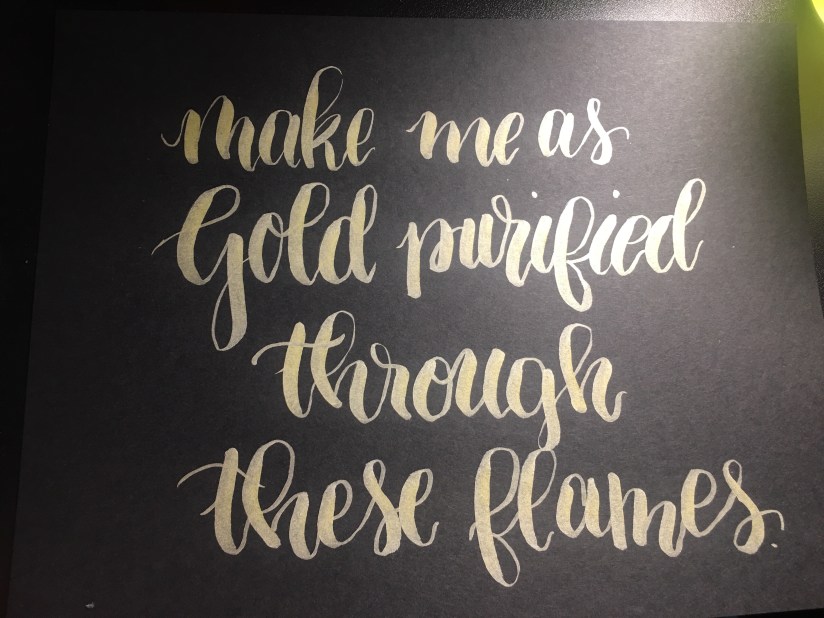 make me as
Gold purified
through
these flames.